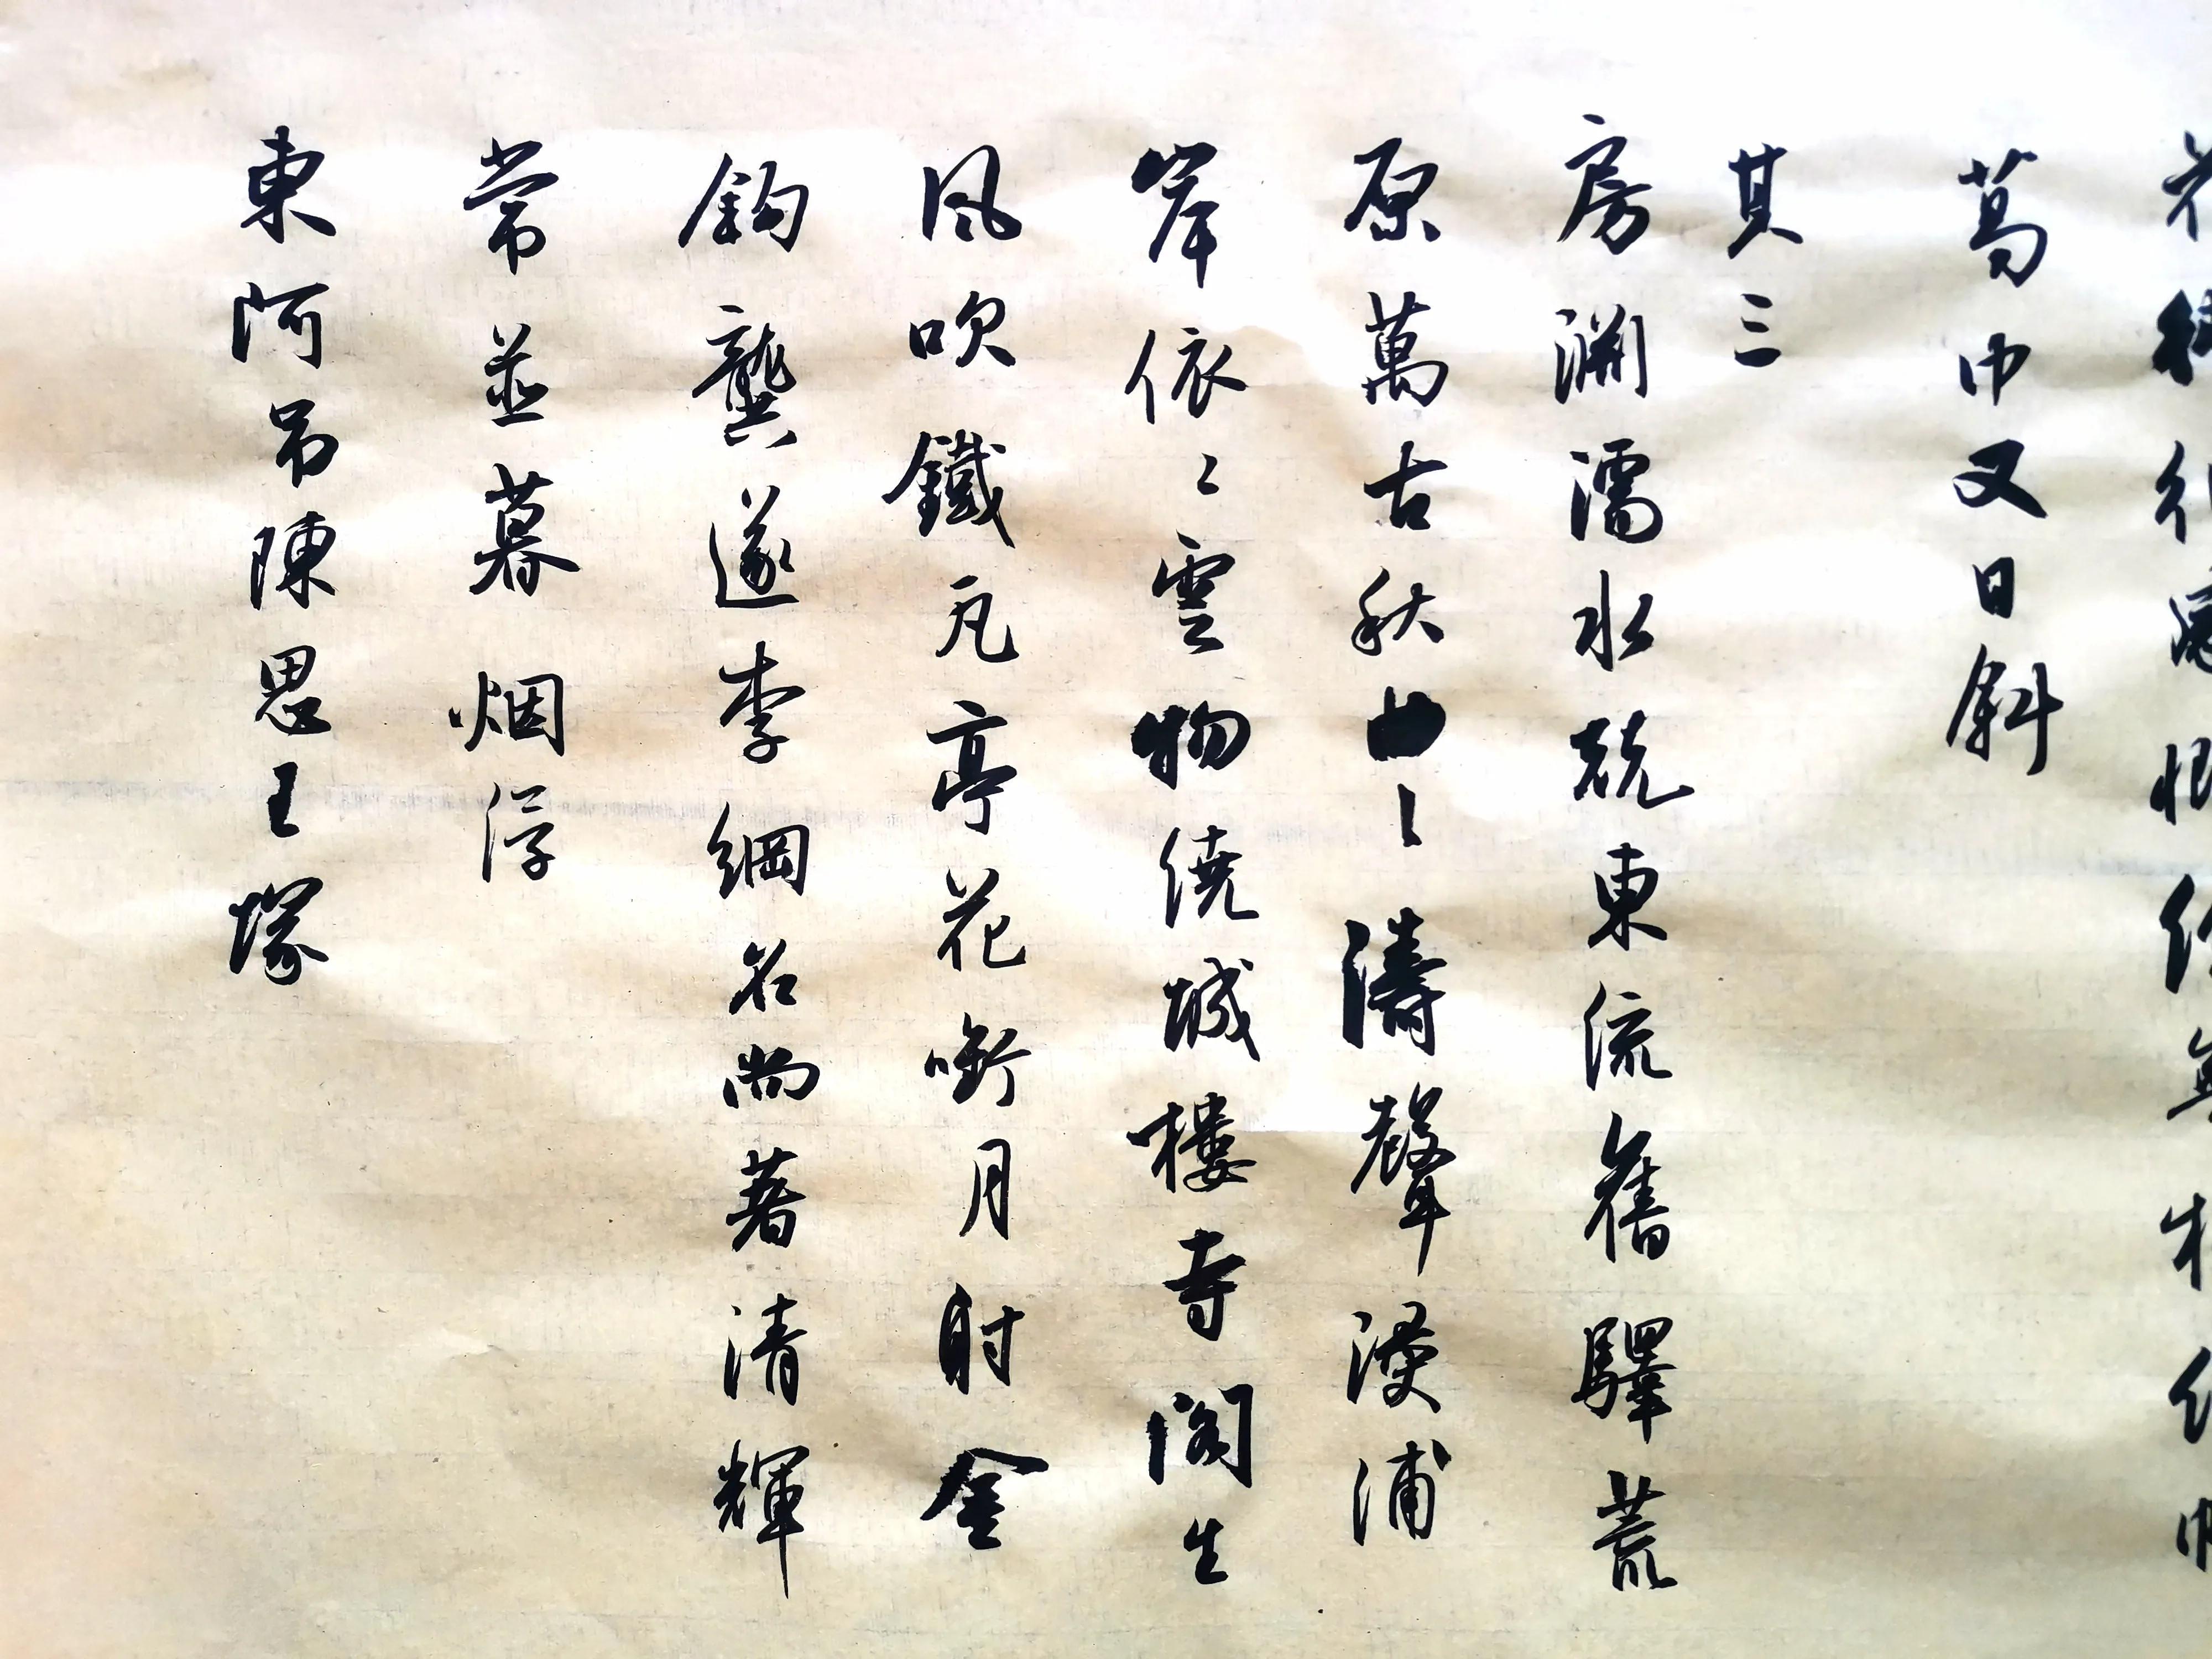 葛巾又日斜
其三
房淵濡水競東流舊驛荒
原萬古秋曲〻濤聲漫浦
岸依〻雲物繞城樓寺閣生
風吹鐵瓦亭花銜月射金
鉤龔遂李綱名尚著清輝
常並暮烟浮
東阿弔陳思王塚